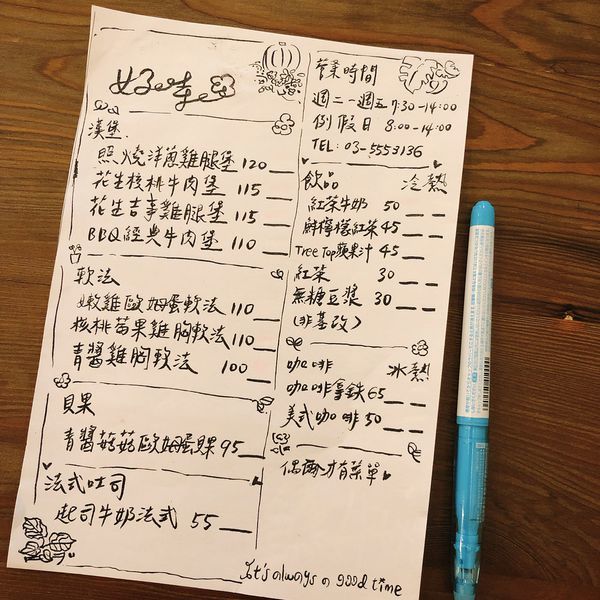 好幸
漢堡
照燒洋蔥雞腿堡 120
花生核桃牛肉堡 115
花生吉事雞腿堡 115
BBQ經典牛肉堡 110
軟法
嫩雞歐姆蛋軟法 110
核桃莓果雞胸軟法 110
青醬雞胸軟法 100
貝果
青醬菇菇歐姆蛋貝果 95
法式吐司
起司牛奶法式 55
營業時間
週二-週五 7:30-14:00
例假日 8:00-14:00
TEL: 03-5553136
飲品 冷 熱
紅茶牛奶 50
鮮檸檬紅茶 45
Tree Top蘋果汁 45
紅茶 30
無糖豆漿 30
(非基改)
咖啡 冰 熱
咖啡拿鐵 65
美式咖啡 50
偶爾才有菜單
It's always a good time